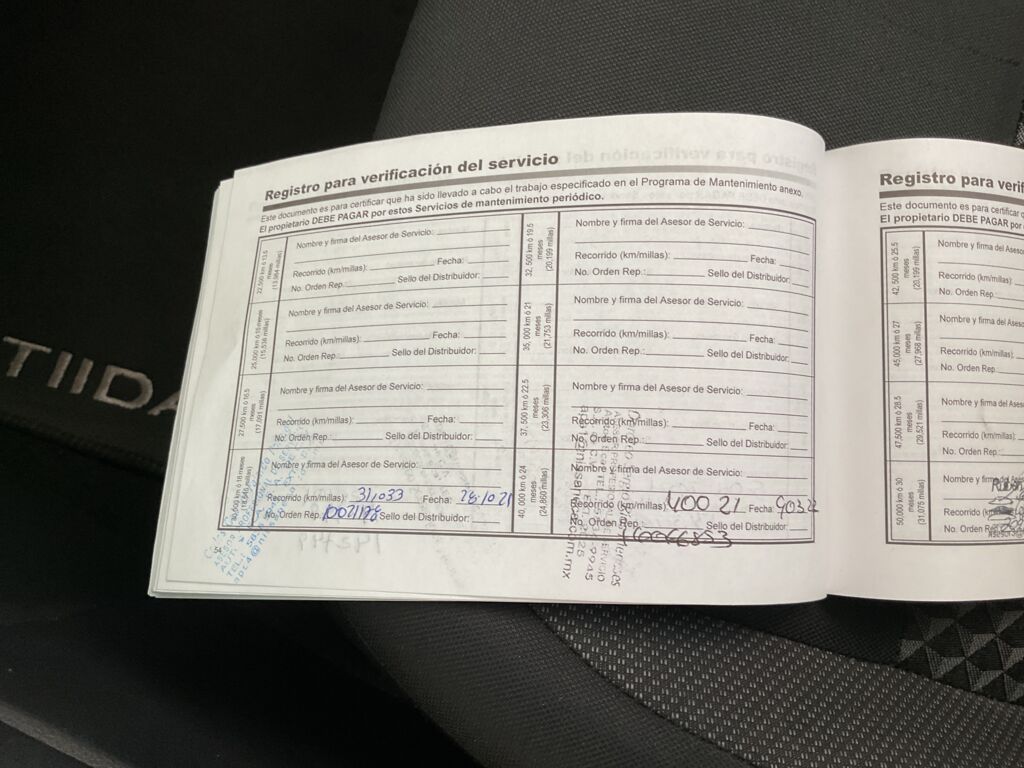 TIIDA
Registro para verificación del servicio
Este documento es para certificar que ha sido llevado a cabo el trabajo especificado en el Programa de Mantenimiento anexo.
El propietario DEBE PAGAR por estos Servicios de mantenimiento periódico.
22,500 km ó 13.5
meses
(13,984 millas)
Nombre y firma del Asesor de Servicio:
Recorrido (km/millas): Fecha:
No. Orden Rep.: Sello del Distribuidor:
25,000 km ó 15 meses
(15,538 millas)
Nombre y firma del Asesor de Servicio:
Recorrido (km/millas): Fecha:
No. Orden Rep.: Sello del Distribuidor:
27,500 km ó 16.5
meses
(17,091 millas)
Nombre y firma del Asesor de Servicio:
Recorrido (km/millas): Fecha:
No. Orden Rep.: Sello del Distribuidor:
30,000 km ó 18 meses
(18,646 millas)
Nombre y firma del Asesor de Servicio:
Recorrido (km/millas): 31,033 Fecha: 28.10.21
No. Orden Rep. Sello del Distribuidor:
54
32, 500 km ó 19.5
meses
(20,199 millas)
Nombre y firma del Asesor de Servicio:
Recorrido (km/millas): Fecha:
No. Orden Rep.: Sello del Distribuidor:
35, 000 km ó 21
meses
(21,753 millas)
Nombre y firma del Asesor de Servicio:
Recorrido (km/millas): Fecha:
No. Orden Rep.: Sello del Distribuidor:
37, 500 km ó 22.5
meses
(23,306 millas)
Nombre y firma del Asesor de Servicio:
Recorrido (km/millas): Fecha:
No. Orden Rep.: Sello del Distribuidor:
40, 000 km ó 24
meses
(24,860 millas)
Nombre y firma del Asesor de Servicio:
Recorrido (km/millas): 40021 Fecha:
No. Orden Rep.: Sello del Distribuidor:
Registro para verif
Este documento es para certificar
El propietario DEBE PAGAR por
42, 500 km ó 25.5
meses
(20,199 millas)
Nombre y firma del Aseso
Recorrido (km/millas):
No. Orden Rep.:
45,000 km ó 27
meses
(27,968 millas)
Nombre y firma del Aseso
Recorrido (km/millas):
No. Orden Rep.:
47,500 km ó 28.5
meses
(29,521 millas)
Nombre y firma del Aseso
Recorrido (km/millas):
No. Orden Rep.:
50,000 km ó 30
meses
(31,075 millas)
Nombre y firma del Aseso
Recorrido
No. Orden Rep.